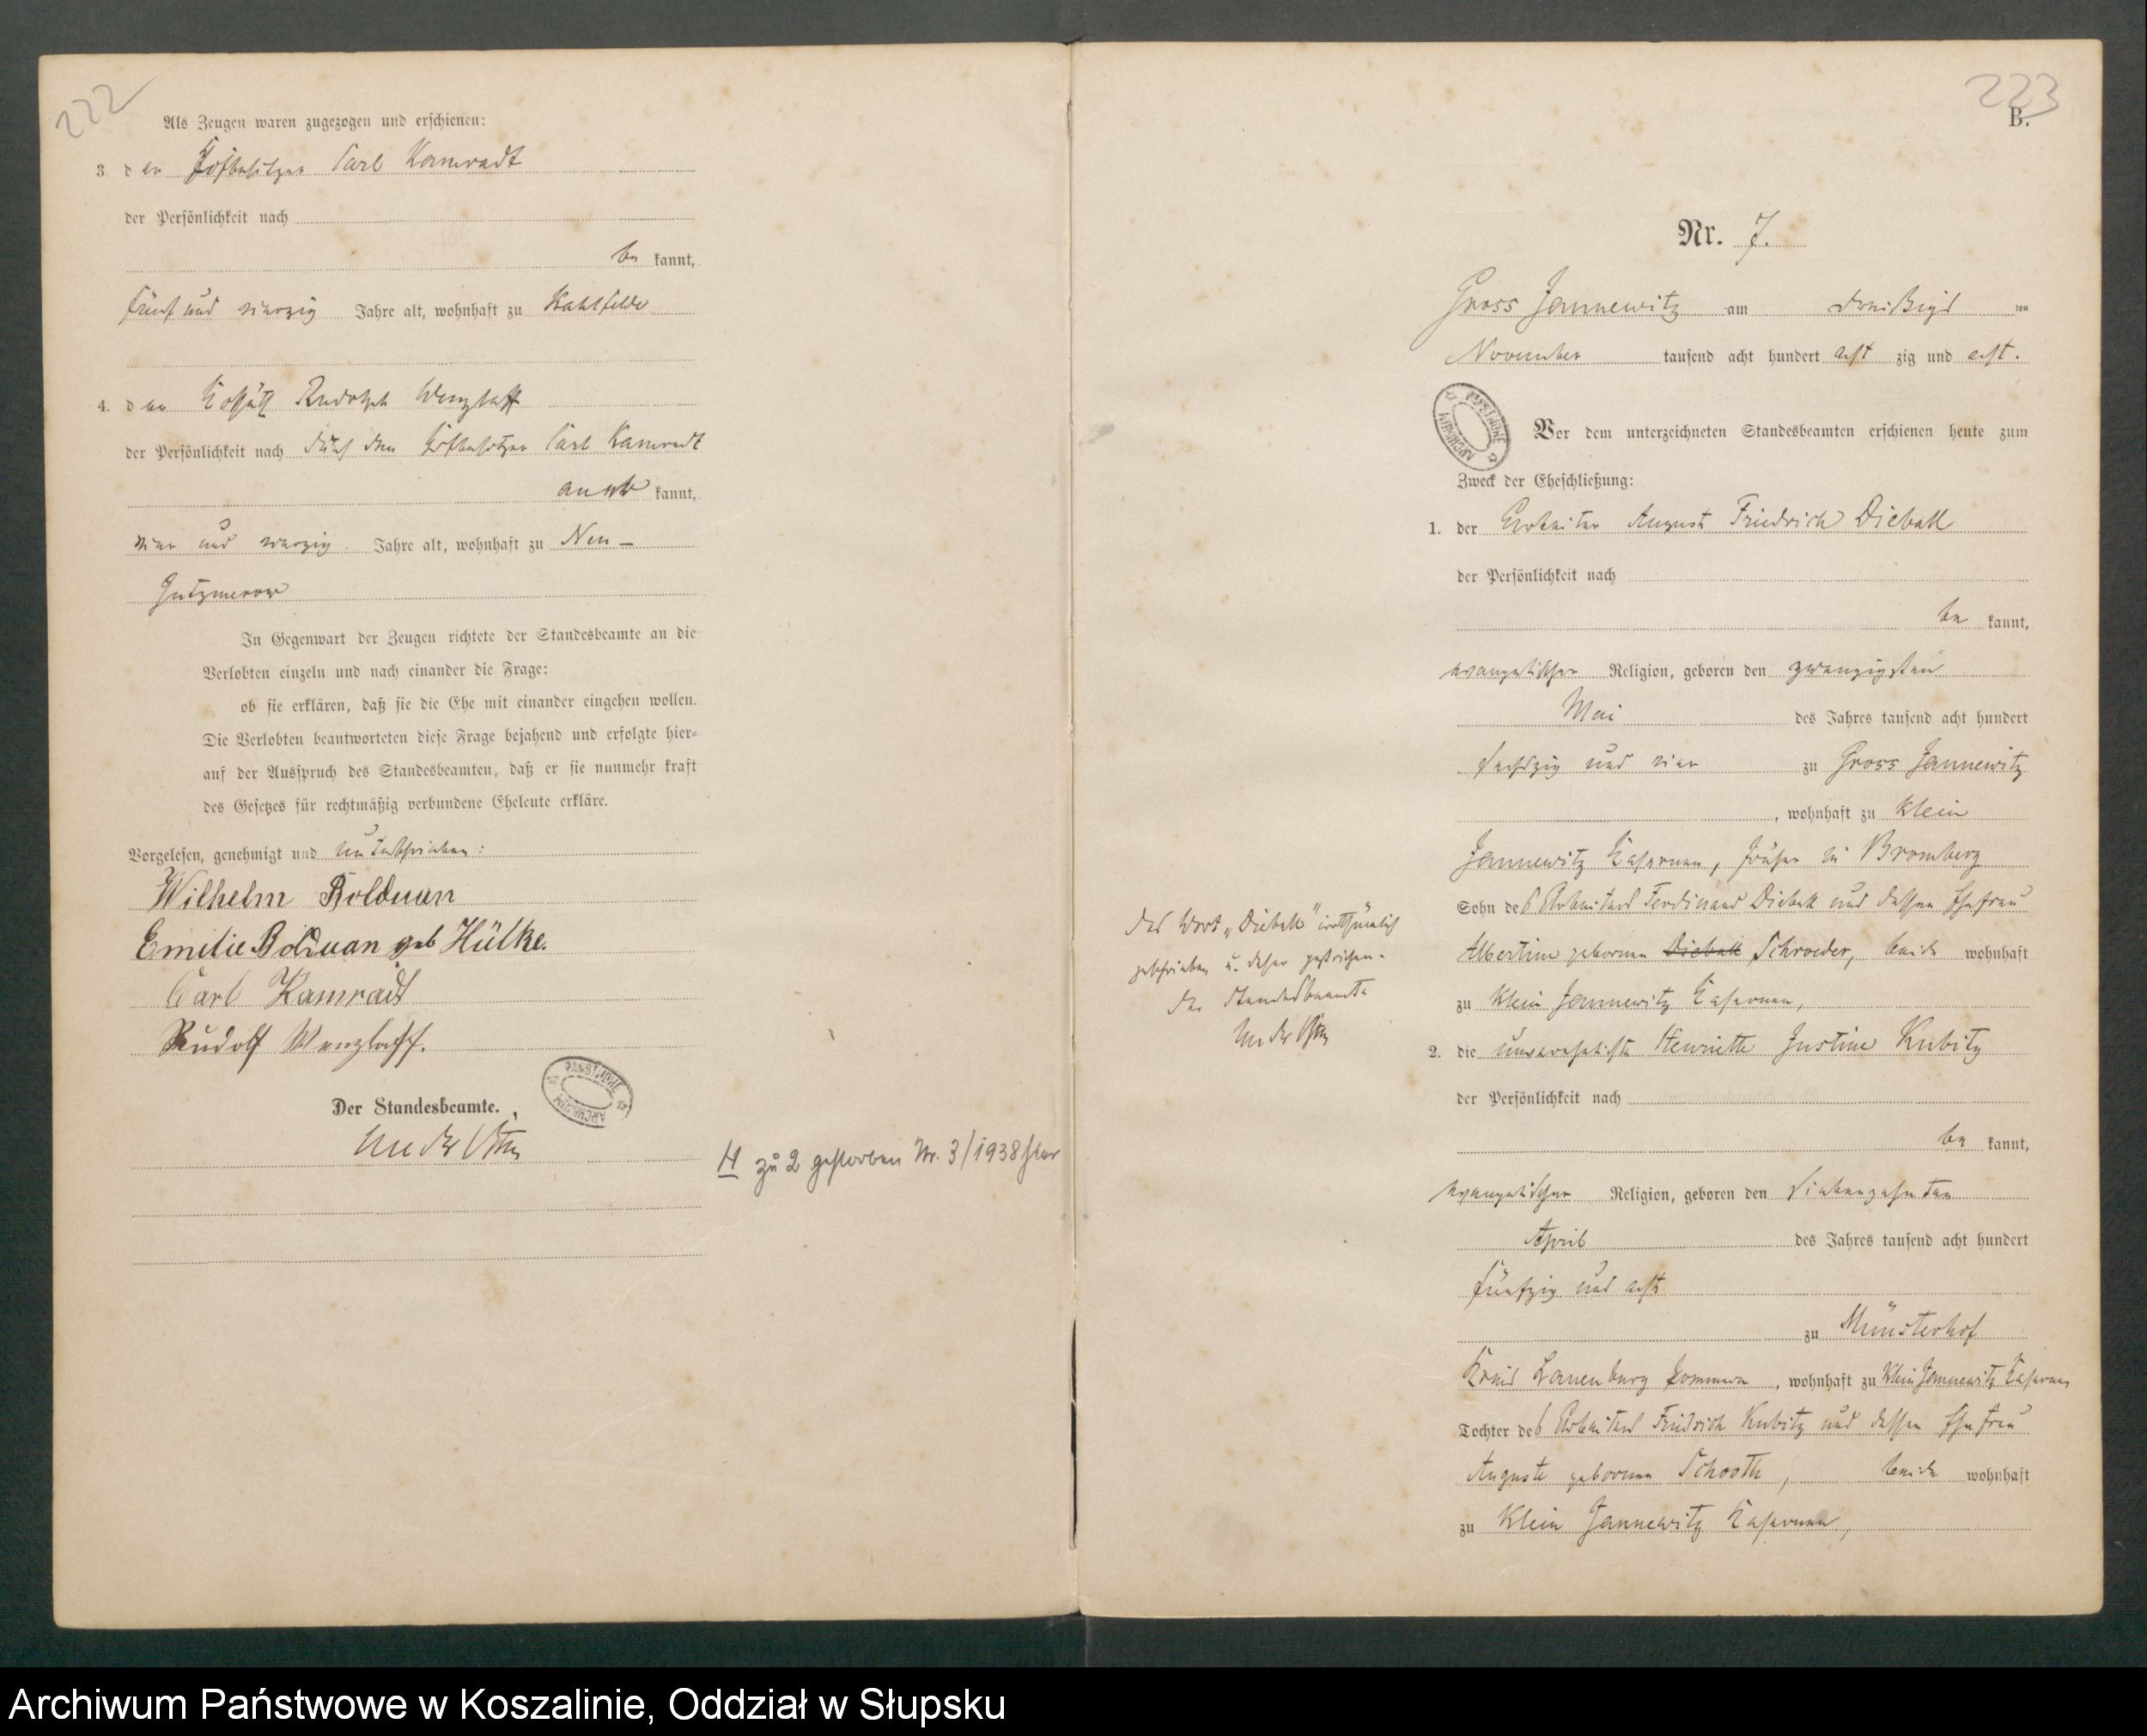 222
Als Zeugen waren zugezogen und erschienen:
3. der Hofbesitzer Carl Kamradt
der Persönlichkeit nach
be kannt,
fünf und vierzig Jahre alt, wohnhaft zu
4. der Kossäth Rudolph Wenzlaff
der Persönlichkeit nach durch den Hofbesitzer Carl Kamradt
aner kannt,
vier und vierzig Jahre alt, wohnhaft zu Neu-
Gutzmerow
In Gegenwart der Zeugen richtete der Standesbeamte an die
Verlobten einzeln und nach einander die Frage:
ob sie erklären, daß sie die Ehe mit einander eingehen wollen.
Die Verlobten beantworteten diese Frage bejahend und erfolgte hier-
auf der Ausspruch des Standesbeamten, daß er sie nunmehr kraft
des Gesetzes für rechtmäßig verbundene Eheleute erkläre.
Vorgelesen, genehmigt und unterschrieben:
Wilhelm Bolduan
Emilie Bolduan geb Hülke.
Carl Kamradt
Rudolf Wenzlaff.
Der Standesbeamte.
H zu 2 gestorben Nr. 3/1938 hier
223
B.
Nr. 7.
Gross Jannewitz am dreißigs ten
November tausend acht hundert acht zig und acht.
Vor dem unterzeichneten Standesbeamten erschienen heute zum
Zweck der Eheschließung:
1. der Arbeiter August Friedrich Dieball
der Persönlichkeit nach
be kannt,
evangelischer Religion, geboren den zwanzigsten
Mai des Jahres tausend acht hundert
sechszig und vier zu Gross Jannewitz
, wohnhaft zu Klein
Jannewitz Kasernen, früher in Bromberg
Sohn des Arbeiters Ferdinand Dieball und dessen Ehefrau
Albertine geborenen Dieball Schroeder, beide wohnhaft
zu Klein Jannewitz Kasernen,
Das Wort „Dieball" irrthümlich
geschrieben u. daher gestrichen.
Der Standesbeamte
2. die unverehelichte Henriette Justine Kubitz
der Persönlichkeit nach
be kannt,
evangelischer Religion, geboren den siebenzehnten
April des Jahres tausend acht hundert
fünfzig und acht
zu Münsterhof
Kreis Lauenburg Pommern, wohnhaft zu Klein Jannewitz Kasernen
Tochter des Arbeiters Friedrich Kubitz und dessen Ehefrau
Auguste geborenen Schooth, beide wohnhaft
zu Klein Jannewitz Kasernen,
Archiwum Państwowe w Koszalinie, Oddział w Słupsku